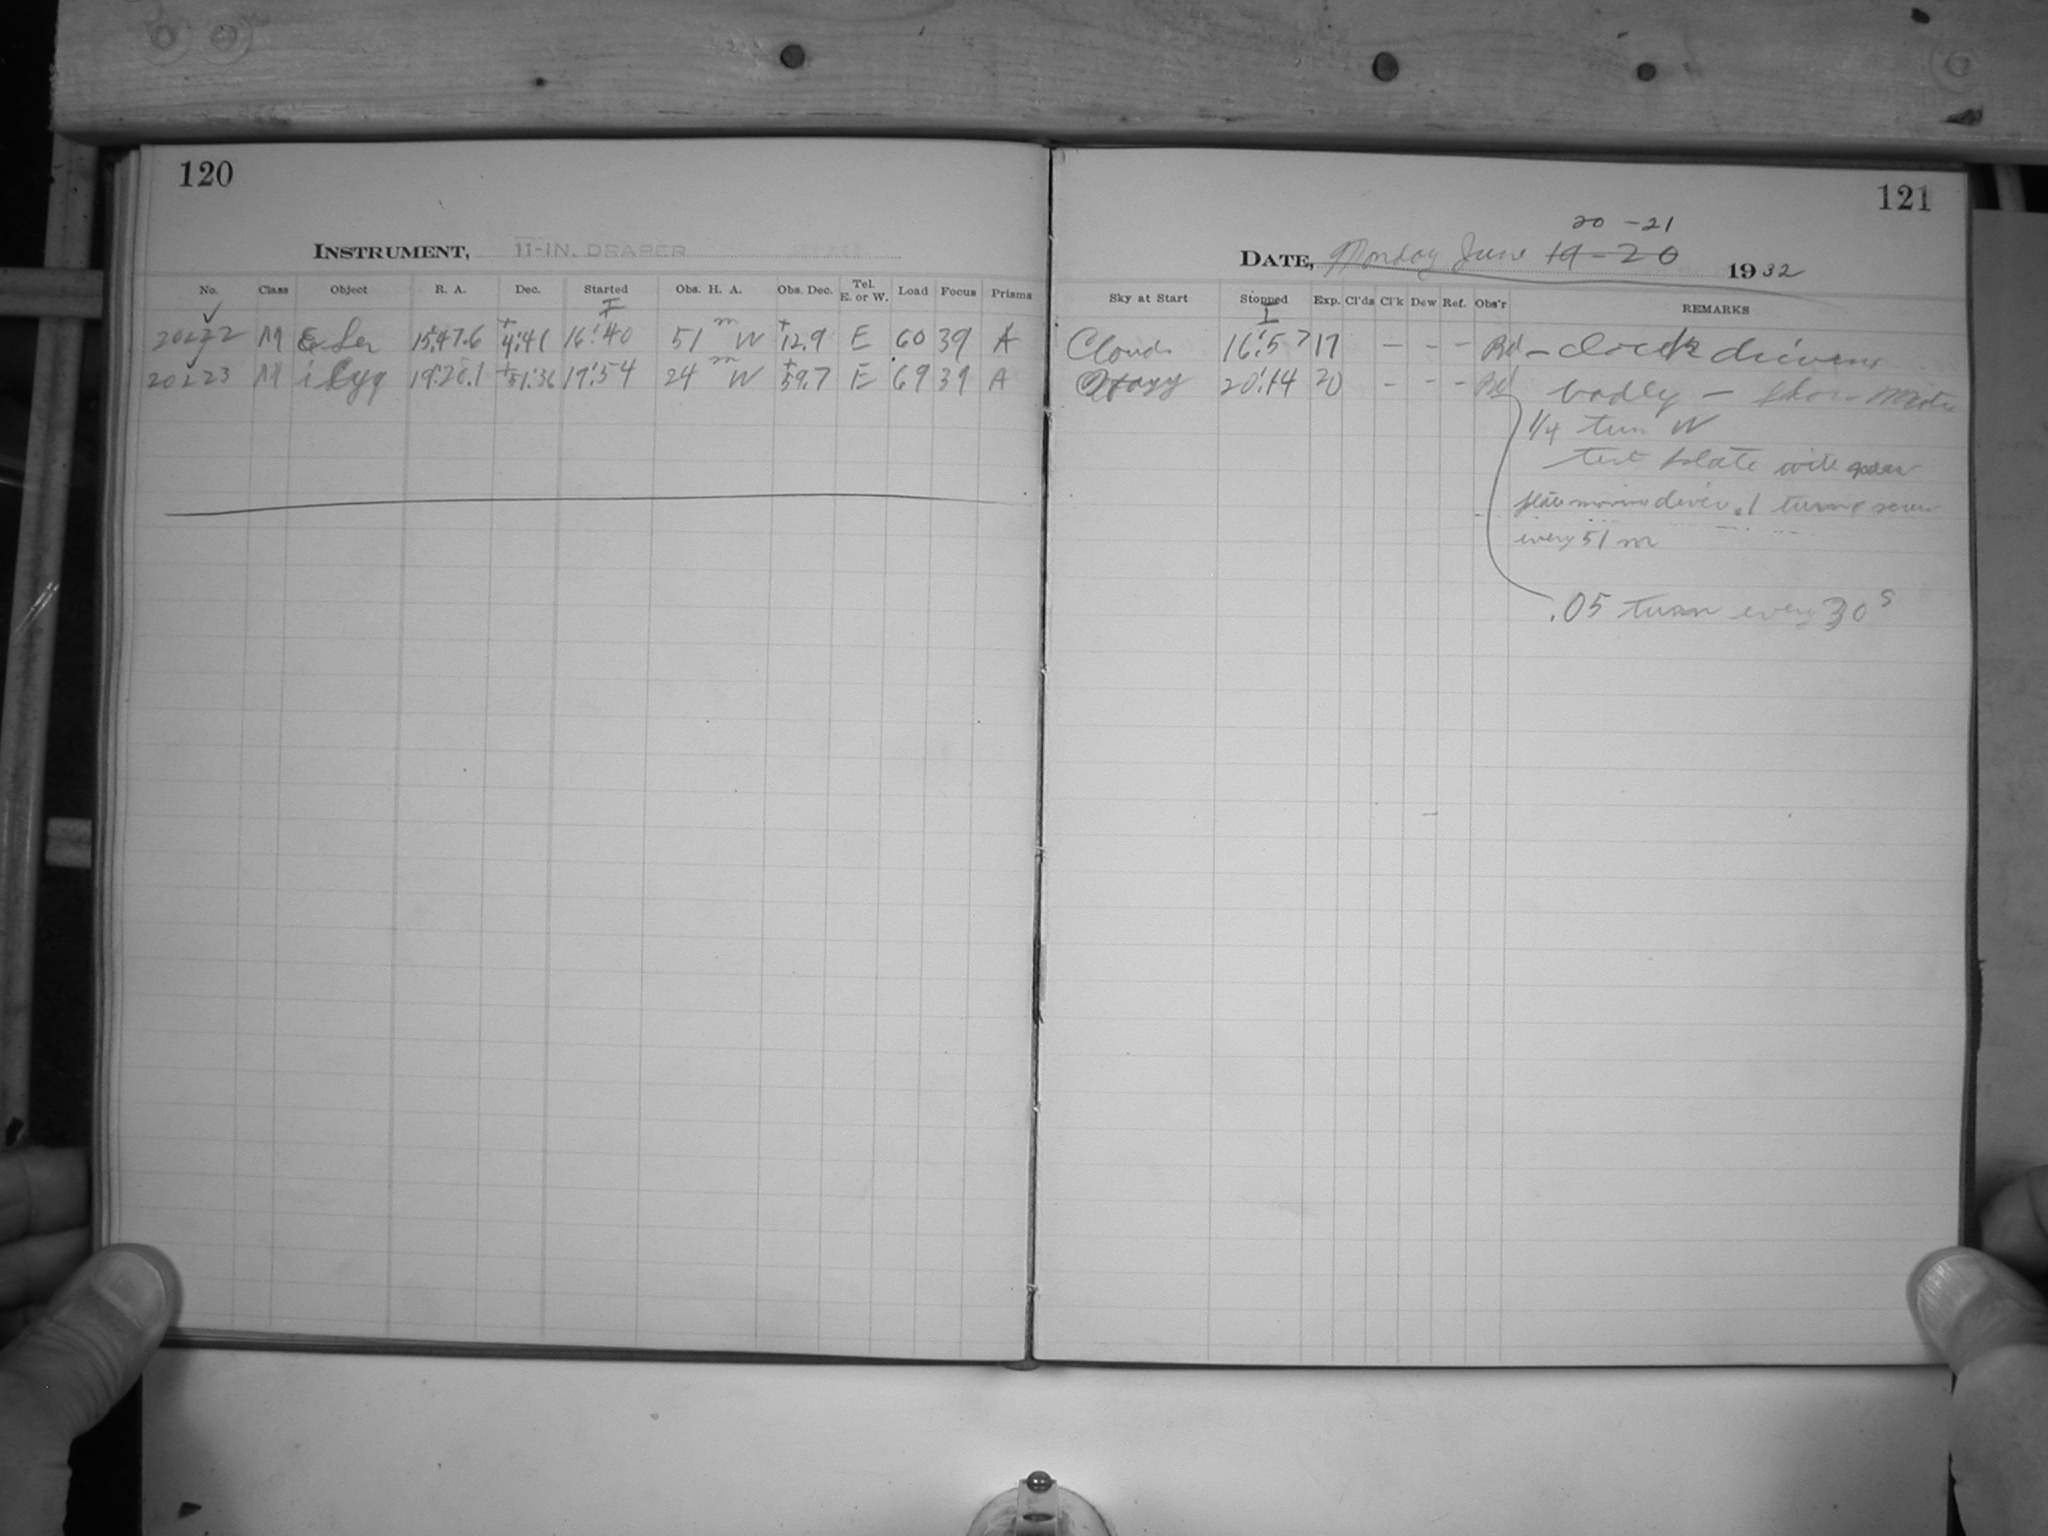 120
INSTRUMENT, 11-IN. DRAPER
No. Class Object R. A. Dec. Started Obs. H. A. Obs. Dec. Tel. E. or W. Load Focus Prisms
✓ I
20222 M ε Ser 15:47.6 +4:41 16:40 51 m W +12.9 E 60 39 A
✓
20223 M i Cyg +51:36 19:54 24 m W +59.7 E 69 39 A
121
20 - 21
DATE, Monday June 19-20 1932
Sky at Start Stopped Exp. Cl'ds Cl'k Dew Ref. Obs'r REMARKS
I
Clouds 16:57 17 - - - - Clock driving
20:14 20 - - - badly -
1/4 turn W
test plate with
1 turn
every 51 m
.05 turn every 30 s